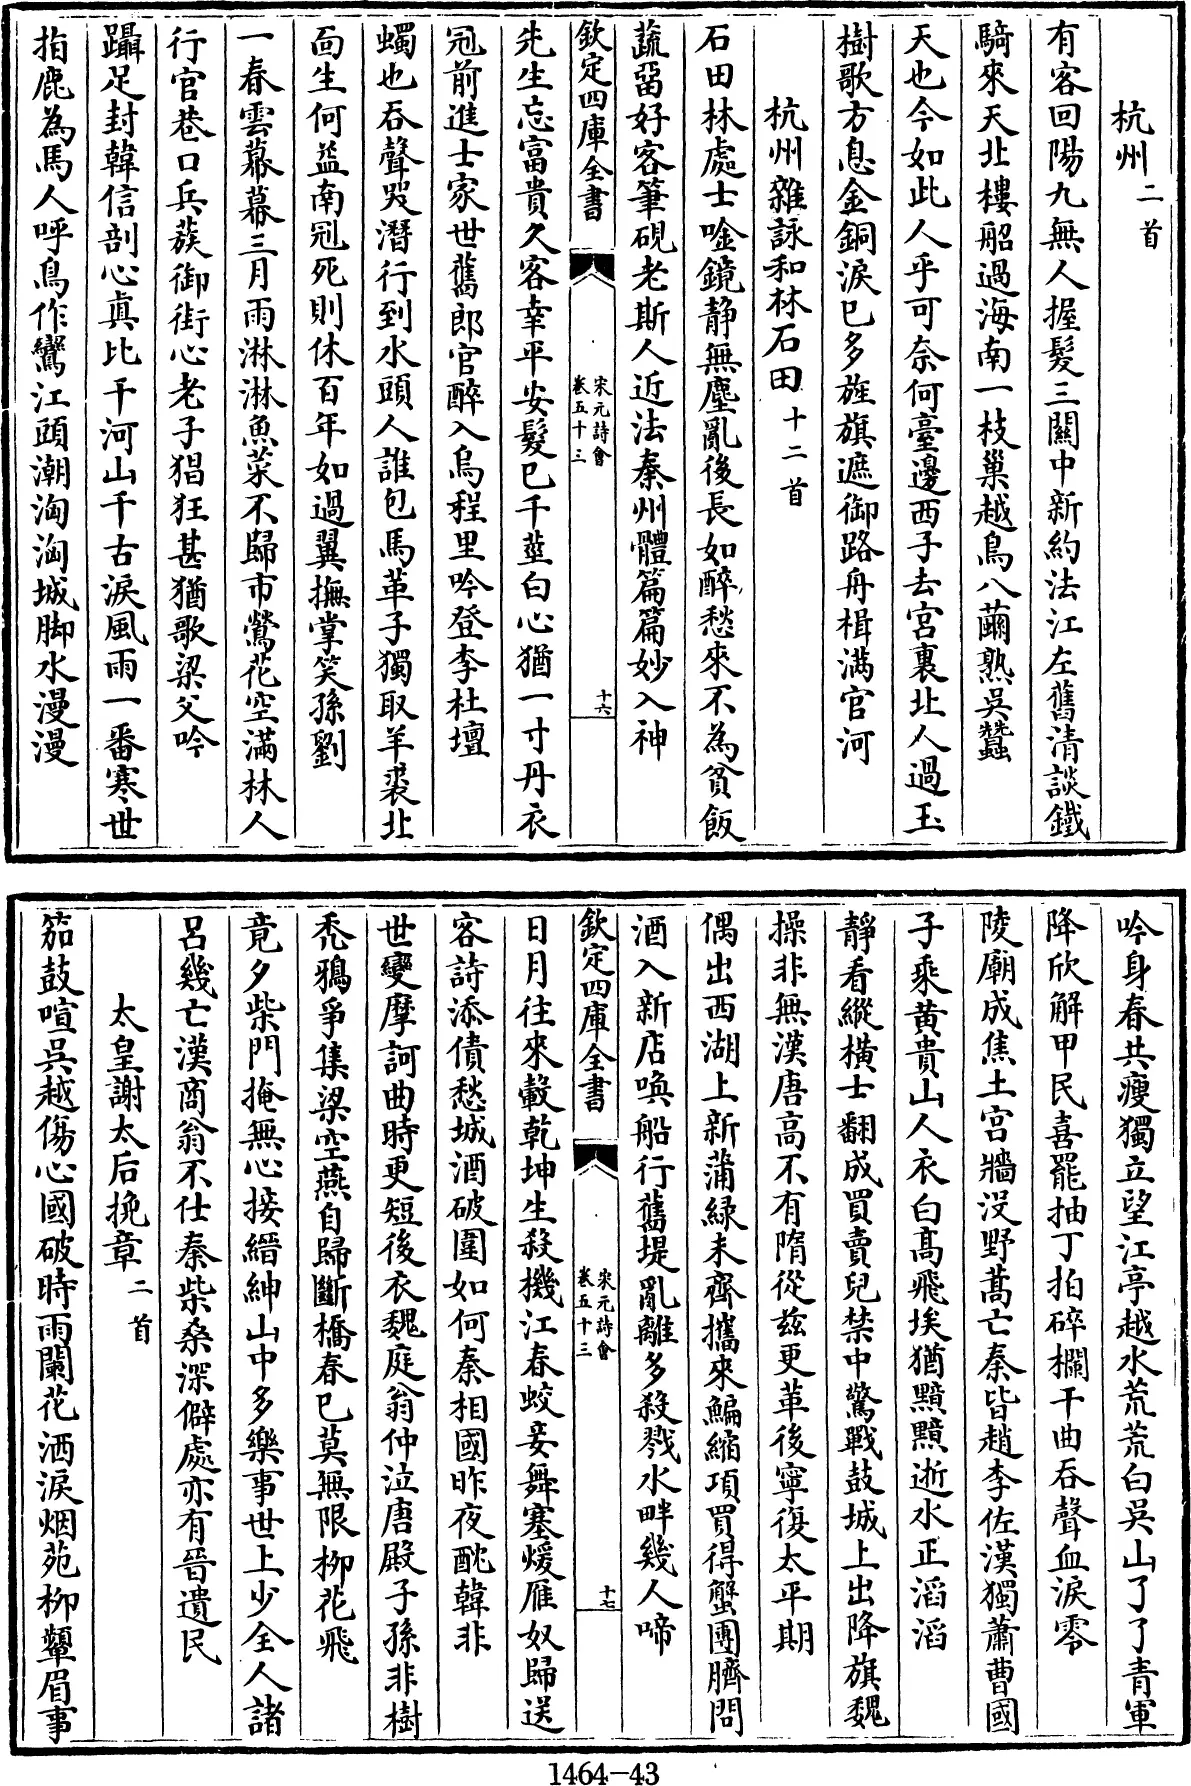 杭州二首
有客回陽九無人握髮三關中新約法江左舊清談鐵
騎來天北樓船過海南一枝巢越鳥八繭熟吳蠶
天也今如此人乎可奈何臺邊西子去宮裏北人過玉
樹歌方息金銅淚已多旌旗遮御路舟楫滿官河
杭州雜詠和林石田十二首
石田林處士唫鏡靜無塵亂後長如醉愁來不為貧飯
蔬留好客筆硯老斯人近法秦州體篇篇妙入神
欽定四庫全書
宋元詩會
卷五十三
十六
先生忘富貴久客幸平安髮已千莖白心猶一寸丹衣
冠前進士家世舊郎官醉入烏程里吟登李杜壇
蠋也吞聲哭潛行到水頭人誰包馬革子獨取羊裘北
面生何益南冠死則休百年如過翼撫掌笑孫劉
一春雲幕幕三月雨淋淋魚菜不歸市鶯花空滿林人
行官巷口兵蔟御街心老子猖狂甚猶歌梁父吟
躡足封韓信剖心真比干河山千古淚風雨一番寒世
指鹿為馬人呼鳥作鸞江頭潮洶洶城脚水漫漫
吟身春共瘦獨立望江亭越水荒荒白吳山了了青軍
降欣解甲民喜罷抽丁拍碎欄干曲吞聲血淚零
陵廟成焦土宮牆沒野蒿亡秦皆趙李佐漢獨蕭曹國
子乘黃貴山人衣白高飛埃猶黯黯逝水正滔滔
靜看縱橫士翻成買賣兒禁中驚戰鼓城上出降旗魏
操非無漢唐高不有隋從茲更革後寧復太平期
偶出西湖上新蒲綠未齊攜來鯿縮項買得蟹團臍問
酒入新店喚船行舊堤亂離多殺戮水畔幾人啼
欽定四庫全書
宋元詩會
卷五十三
十七
日月往來轂乾坤生殺機江春蛟妾舞塞煖雁奴歸送
客詩添債愁城酒破圍如何秦相國昨夜酖韓非
世變摩訶曲時更短後衣魏庭翁仲泣唐殿子孫非樹
禿鴉爭集梁空燕自歸斷橋春已莫無限柳花飛
竟夕柴門掩無心接縉紳山中多樂事世上少全人諸
呂幾亡漢商翁不仕秦柴桑深僻處亦有晉遺民
太皇謝太后挽章二首
笳鼓喧吳越傷心國破時雨闌花洒淚烟苑柳顰眉事
1464-43